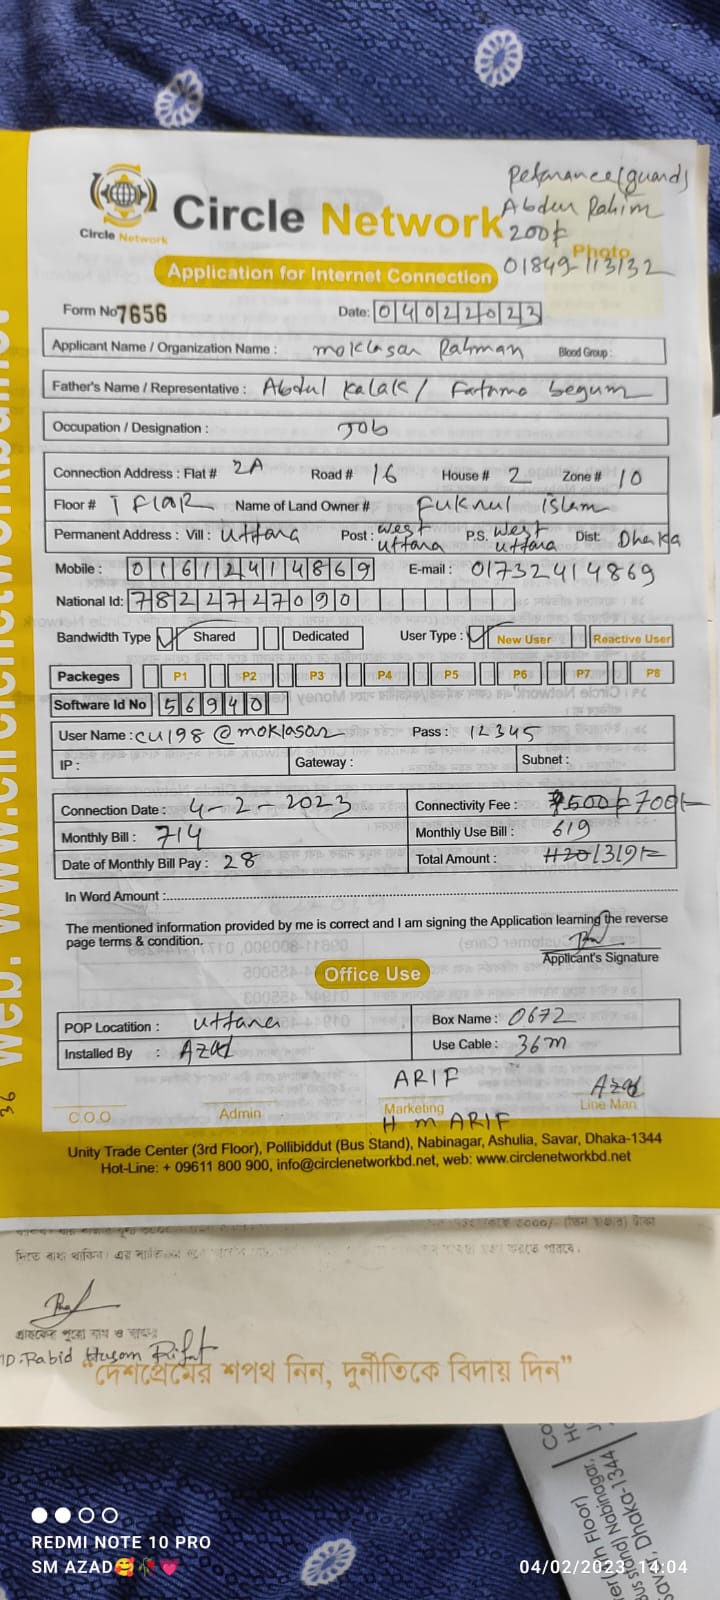 Petarance(guard)
Abdur Rahim
200/-
Photo
01849-113132
Circle Network
Circle Network
Application for Internet Connection
Form No 7656 Date: 04022023
Applicant Name / Organization Name : moklasar Rahman Blood Group :
Father's Name / Representative : Abdul Kalak / Fatama begum
Occupation / Designation : Job
Connection Address : Flat # 2A Road # 16 House # 2 Zone # 10
Floor # Name of Land Owner # Fuknul islam
Permanent Address : Vill : Uttara Post : West Uttara P.S. West Uttara Dist: Dhaka
Mobile : 01612414869 E-mail : 01732414869
National Id: 7822727090
Bandwidth Type Shared Dedicated User Type : New User Reactive User
Packeges P1 P2 P3 P4 P5 P6 P7 P8
Software Id No 56940
User Name : cu198@moklasar Pass : 12345
IP : Gateway : Subnet :
Connection Date : 4-2-2023 Connectivity Fee : 500/- 700/-
Monthly Bill : 714 Monthly Use Bill : 619
Date of Monthly Bill Pay : 28 Total Amount : 1319/-
In Word Amount :
The mentioned information provided by me is correct and I am signing the Application learning the reverse
page terms & condition.
Applicant's Signature
Office Use
POP Locatition : Uttara Box Name : 0672
Installed By : Azad Use Cable : 36m
ARIF Azad
C.O.O Admin Marketing Line Man
H m ARIF
Unity Trade Center (3rd Floor), Pollibiddut (Bus Stand), Nabinagar, Ashulia, Savar, Dhaka-1344
Hot-Line: + 09611 800 900, info@circlenetworkbd.net, web: www.circlenetworkbd.net
36
দিতে বাধ্য থাকিব। এর
করতে পারবে.
গ্রাহকের পুরো নাম ও স্বাক্ষর
MD. Rabid Husom Rifat
“দেশপ্রেমের শপথ নিন, দুর্নীতিকে বিদায় দিন”
REDMI NOTE 10 PRO
SM AZAD🥰🥀💗 04/02/2023 14:04